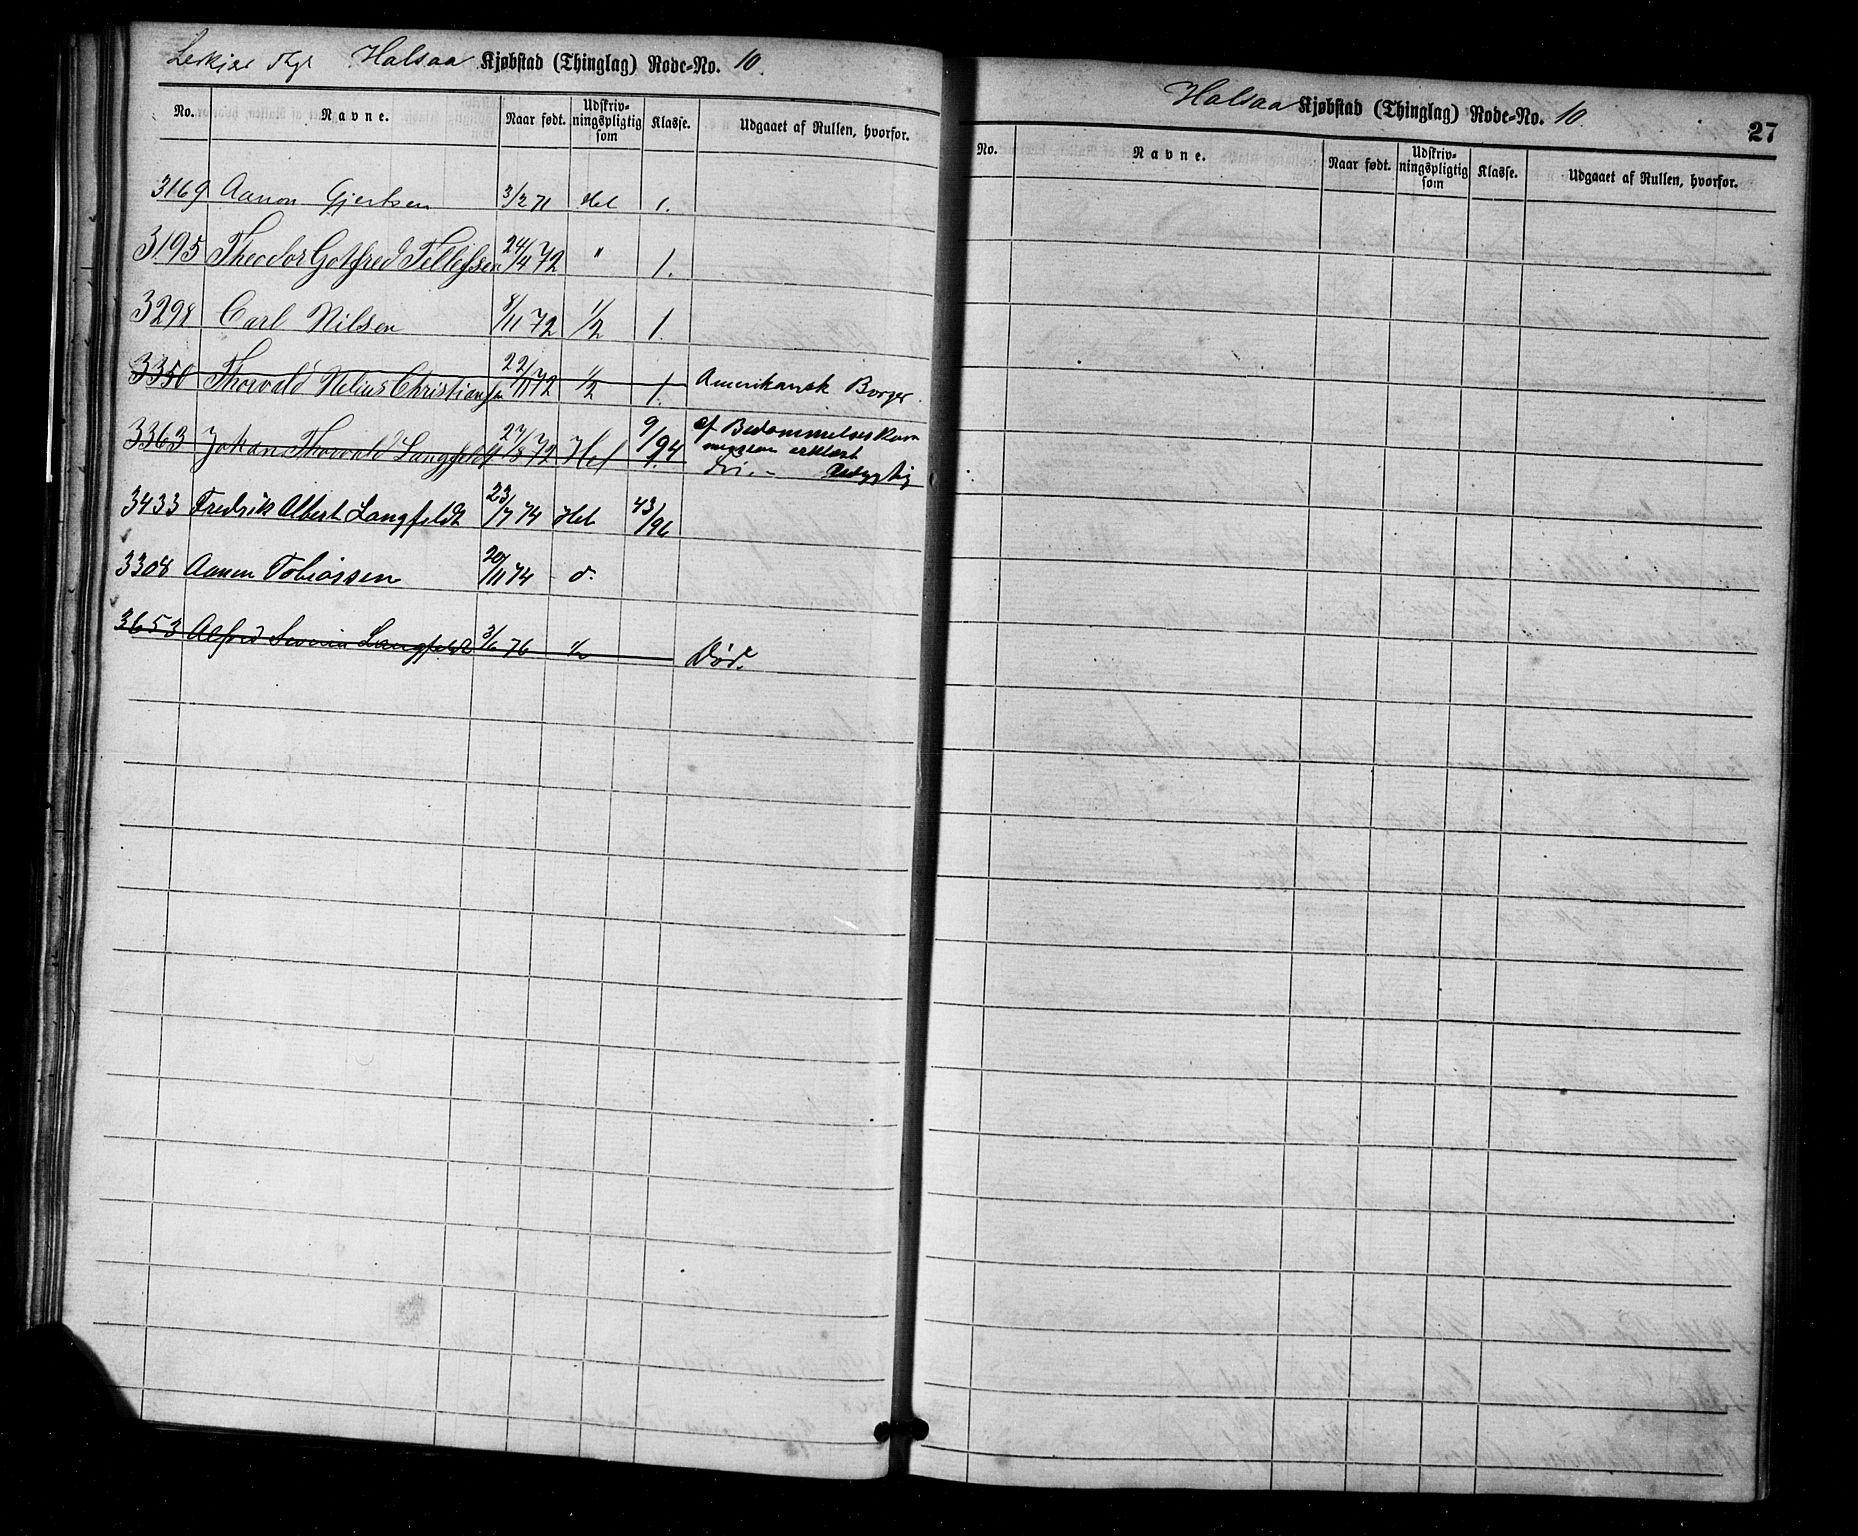 Halsaa Kjøbstad (Thinglag) Rode-No. 10.
No. Navne. Naar født. Udskriv-ningspligtig som Klasse. Udgaaet af Rullen, hvorfor.
3169 Aanon Gjertsen 3/2 71 Hel 1.
3195 Theodor Gotfred Tellefsen 24/4 72 " 1.
3298 Carl Nilsen 8/11 72 1/2 1.
3350 Thorvald Nelius Christiansen 22/11 72 1/2 1. Amerikansk Borger.
3363 Johan Thorvald Langfeldt 27/8 72 Hel 9/94 1. af Bedømmelseskom
mission erklært
udygtig
3433 Fredrik Albert Langfeldt 23/7 74 Hel 43/96
3308 Aanen Tobiassen 20/11 74 d.
3653 Alfred Severin Langfeldt 3/6 76 1/2 Død.
Halsaa Kjøbstad (Thinglag) Rode-No. 10.
27
No. Navne. Naar født. Udskriv-ningspligtig som Klasse. Udgaaet af Rullen, hvorfor.